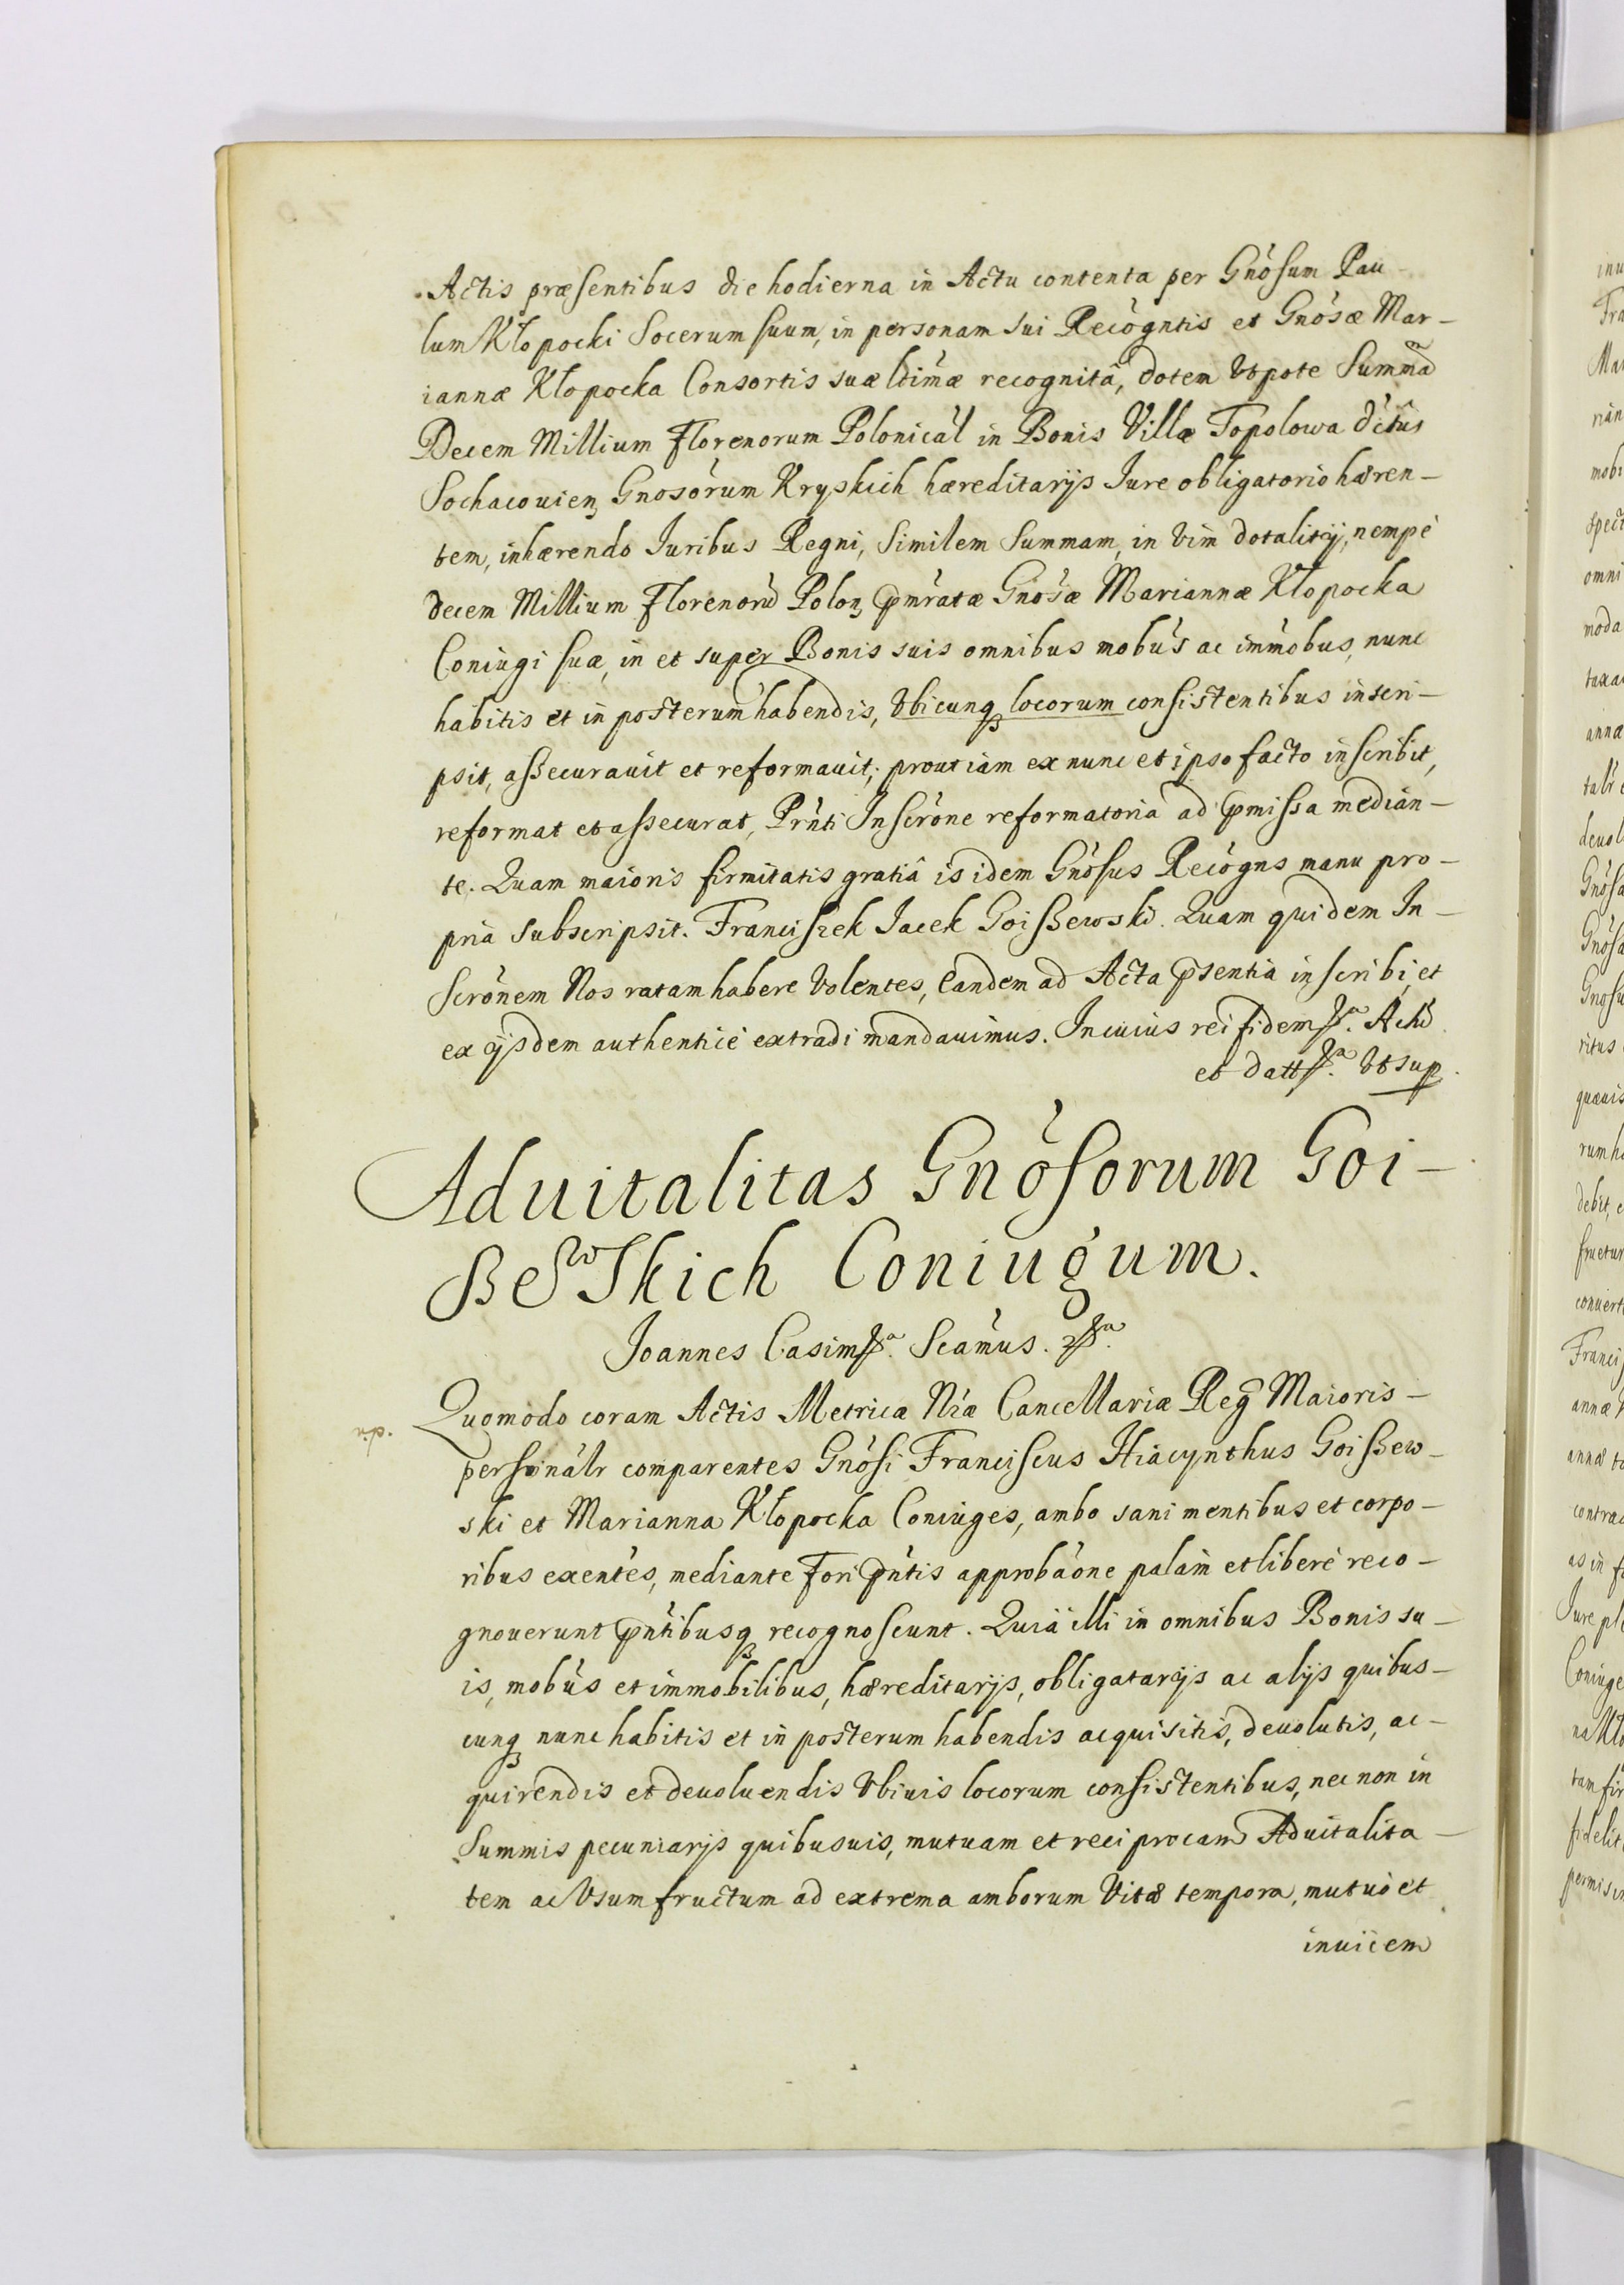 Actis præsentibus die hodierna in Actu contenta per Gnòsum Pau-
lum Kłopocki Socerum suum, in personam sui Recògntis et Gnòsæ Mar-
iannæ Kłopocka Consortis suæ ldimæ recognitâ, dotem Vtpote Summã
Decem Millium Florenorum Polonicàl in Bonis Villæ Topolowa dictus
Sochacouien, Gnosòrum Kryskich hæreditarijs Iure obligatorio hæren-
tem, inhærendo Iuribus Regni, Similem Summam, in Vim dotalitij, nempè
decem Millium Florenorũ Polon, pnratæ Gnòsæ Mariannæ Kłopocka
Coniugi suæ, in et super Bonis suis omnibus mobùs ac immobus, nunc
habitis et in posterum habendis, Vbicunq locorum consistentibus inscri-
psit, assecurauit et reformauit; prout iam ex nunc et ipso facto inscribit,
reformat et assecurat, Prnti Inscròne reformatoria ad pmissa median-
te. Quam maioris firmitatis gratiâ is idem Gnòsus Recògns manu pro-
pria subscripsit. Franciszek Iacek Goiszewski. Quam quidem In-
scrònem Nos ratam habere Volentes, Eandem ad Acta psentia inscribi, et
ex ijsdem authenticè extradi mandauimus. In cuius rei fidem. Actũ
et datt. Vt sup.
Aduitalitas Gnòsorum Goi-
szewskich Coniugum.
Joannes Casim. Scamus.
Quomodo coram Actis Metrica Nræ Cancellariæ Reg Maioris-
personàlr comparentes Gnòsi Franciscus Hiacynthus Goiszew-
ski et Marianna Kłopocka Coniuges, ambo sani mentibus et corpo-
ribus exentes, mediante fori pntis approbàone palam et liberè reco-
gnouerunt pntibusq recognoscunt. Quia illi in omnibus Bonis su-
is, mobùs et immobilibus, hæreditarijs, obligatarijs ac alijs quibus-
cunq nunc habitis et in posterum habendis acquisitis, deuolutis, ac-
quirendis et deuoluendis Vbiuis locorum consistentibus, nec non in
Summis pecuniarijs quibusuis, mutuam et reciprocam Aduitalita-
tem ac Vsumfructum ad extrema amborum Vitæ tempora, mutuò et
inuicem